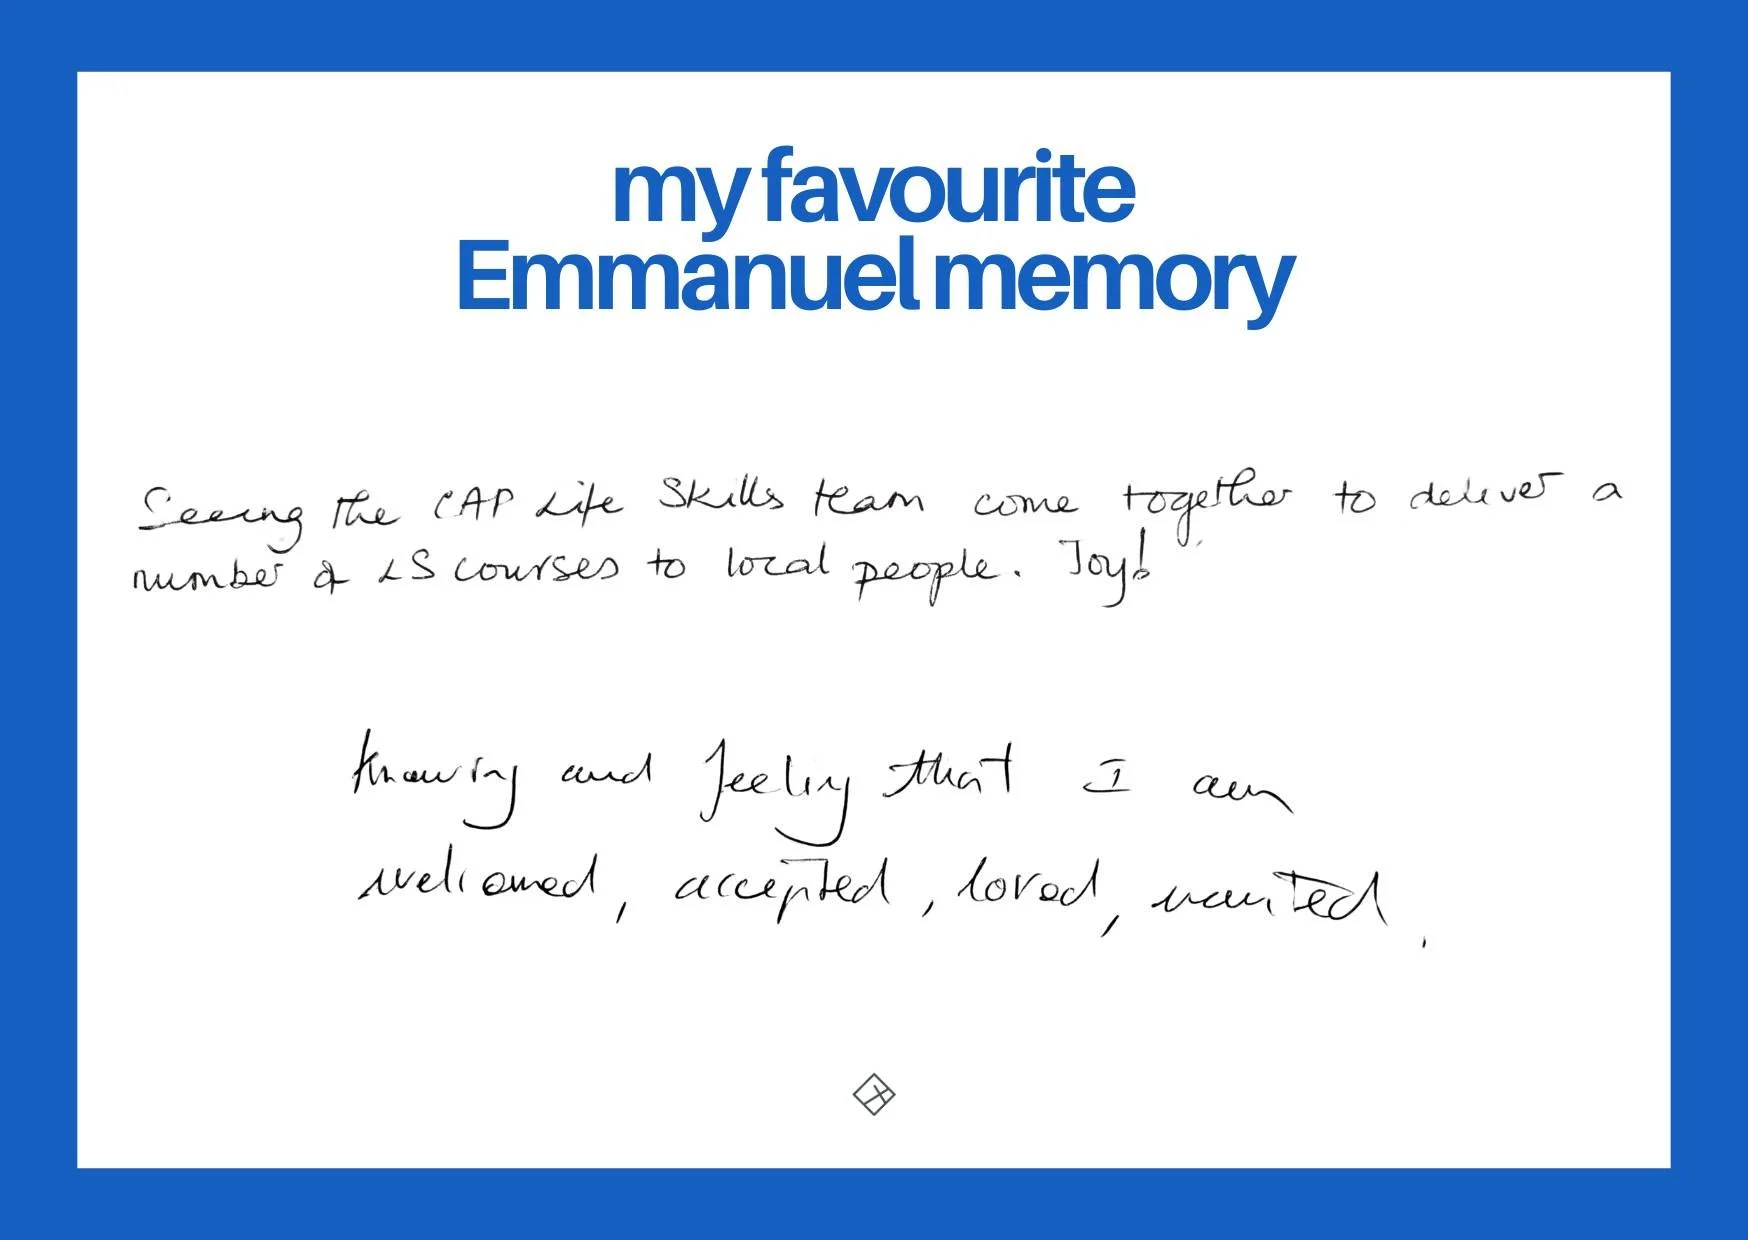 my favourite
Emmanuel memory
Seeing the CAP Life Skills team come together to deliver a
number of LS courses to local people. Joy!
Knowing and feeling that I am
welcomed, accepted, loved, wanted.